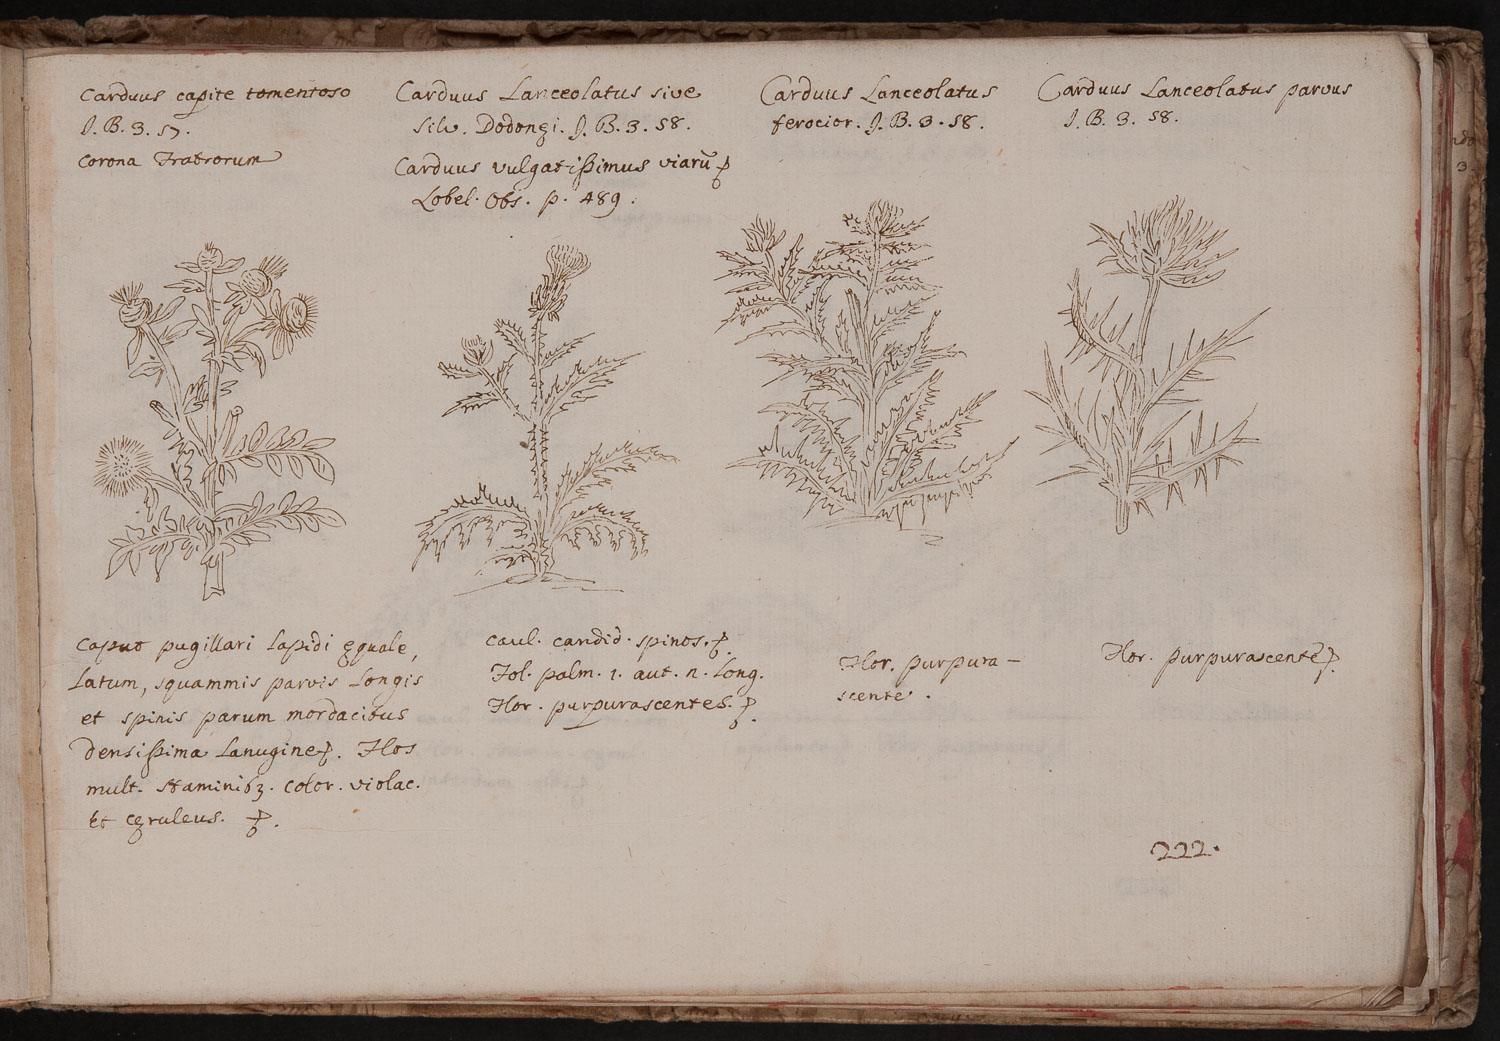 Carduus capite tomentoso
J. B. 3. 57.
Corona Fratrorum
Carduus Lanceolatus sive
silv. Dodonęi. J. B. 3. 58.
Carduus vulgatissimus viarū
Lobel. Obs. p. 489.
Carduus Lanceolatus
ferocior. J. B. 3. 58.
Carduus Lanceolatus parvus
J. B. 3. 58.
Caput pugillari lapidi ęquale,
latum, squammis parvis longis
et spinis parum mordacibus
densissima lanugine. Flos
mult. staminibꝫ. color. violac.
et cęruleus.
caul. candid. spinos.
Fol. palm. 1. aut. 2. long.
Flor. purpurascentes.
Flor. purpura-
scente.
Flor. purpurascente
222.